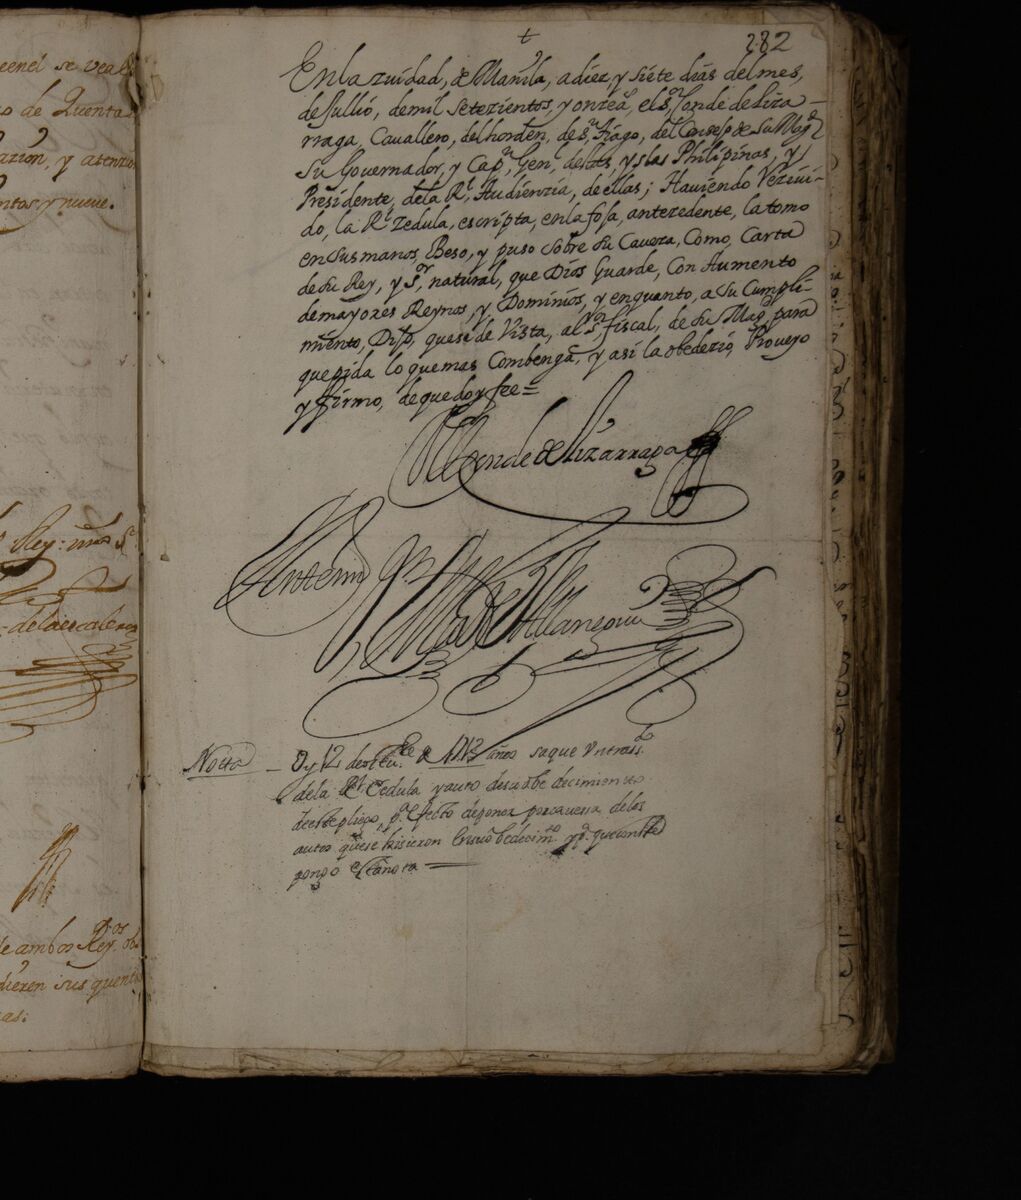 eenel se vea
o de Quenta
azion, y atenzio
ntos y nueve.
Rey: ntro Sr.
de la escalera
de ambos Rey.os ob
dieren sus quenta
as:
282
En la zuidad, de Manila, a diez y siete dias del mes,
de Jullio, de mil setezientos, y onze a.s el s.r Conde de Liza-
rraga, Cavallero, del horden, de S.n Tiago, del Consejo de Su Mag.d
Su Governador, y Cap.n Gen.l destas, yslas Philipinas, y
Presidente, de la R.l Audienzia, de ellas; Haviendo Rezivi-
do, la R.l Zedula, escripta, en la foja, antezedente, la tomo
en sus manos, Beso, y puso sobre su Caveza, Como, Carta
de su Rey, y S.or natural, que Dios Guarde, Con Aumento
de mayores Reynos, y Dominios, y en quanto, a su Cumpli-
miento, Dijo, que se de Vista, al S.or fiscal, de Su Mag.d para
que pida lo que mas Combenga, y asi la obedezio, Proveyo
y firmo, de que doy fee =
El Conde de Lizarraga
Antonio
de Villanueva
Notta
Oy 12 de de 1712 años saque Un trasl.do
de la R.l Cedula y auto de su obedecimiento
de este pliego, p.a efecto de poner por cavesa de los
autos q.e se hisieron en su obedecim.to y p.a que conste
pongo esta nota =